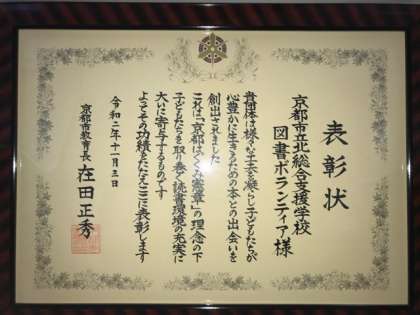 表彰状
京都市立北総合支援学校
図書ボランティア様
貴団体は様々な工夫を凝らし子どもたちが
心豊かに生きるための本との出会いを
創出されました
これは「京都はぐくみ憲章」の理念の下
子どもたちを取り巻く読書環境の充実に
大いに寄与するものです
よってその功績をたたえここに表彰します
令和二年十一月三日
京都市教育長 在田正秀